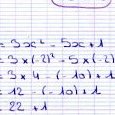 = 3x² - 5x + 1
= 3 × (-2)² - 5 × (-2)
= 3 × 4 - (-10) + 1
= 12 - (-10) + 1
= 22 + 1